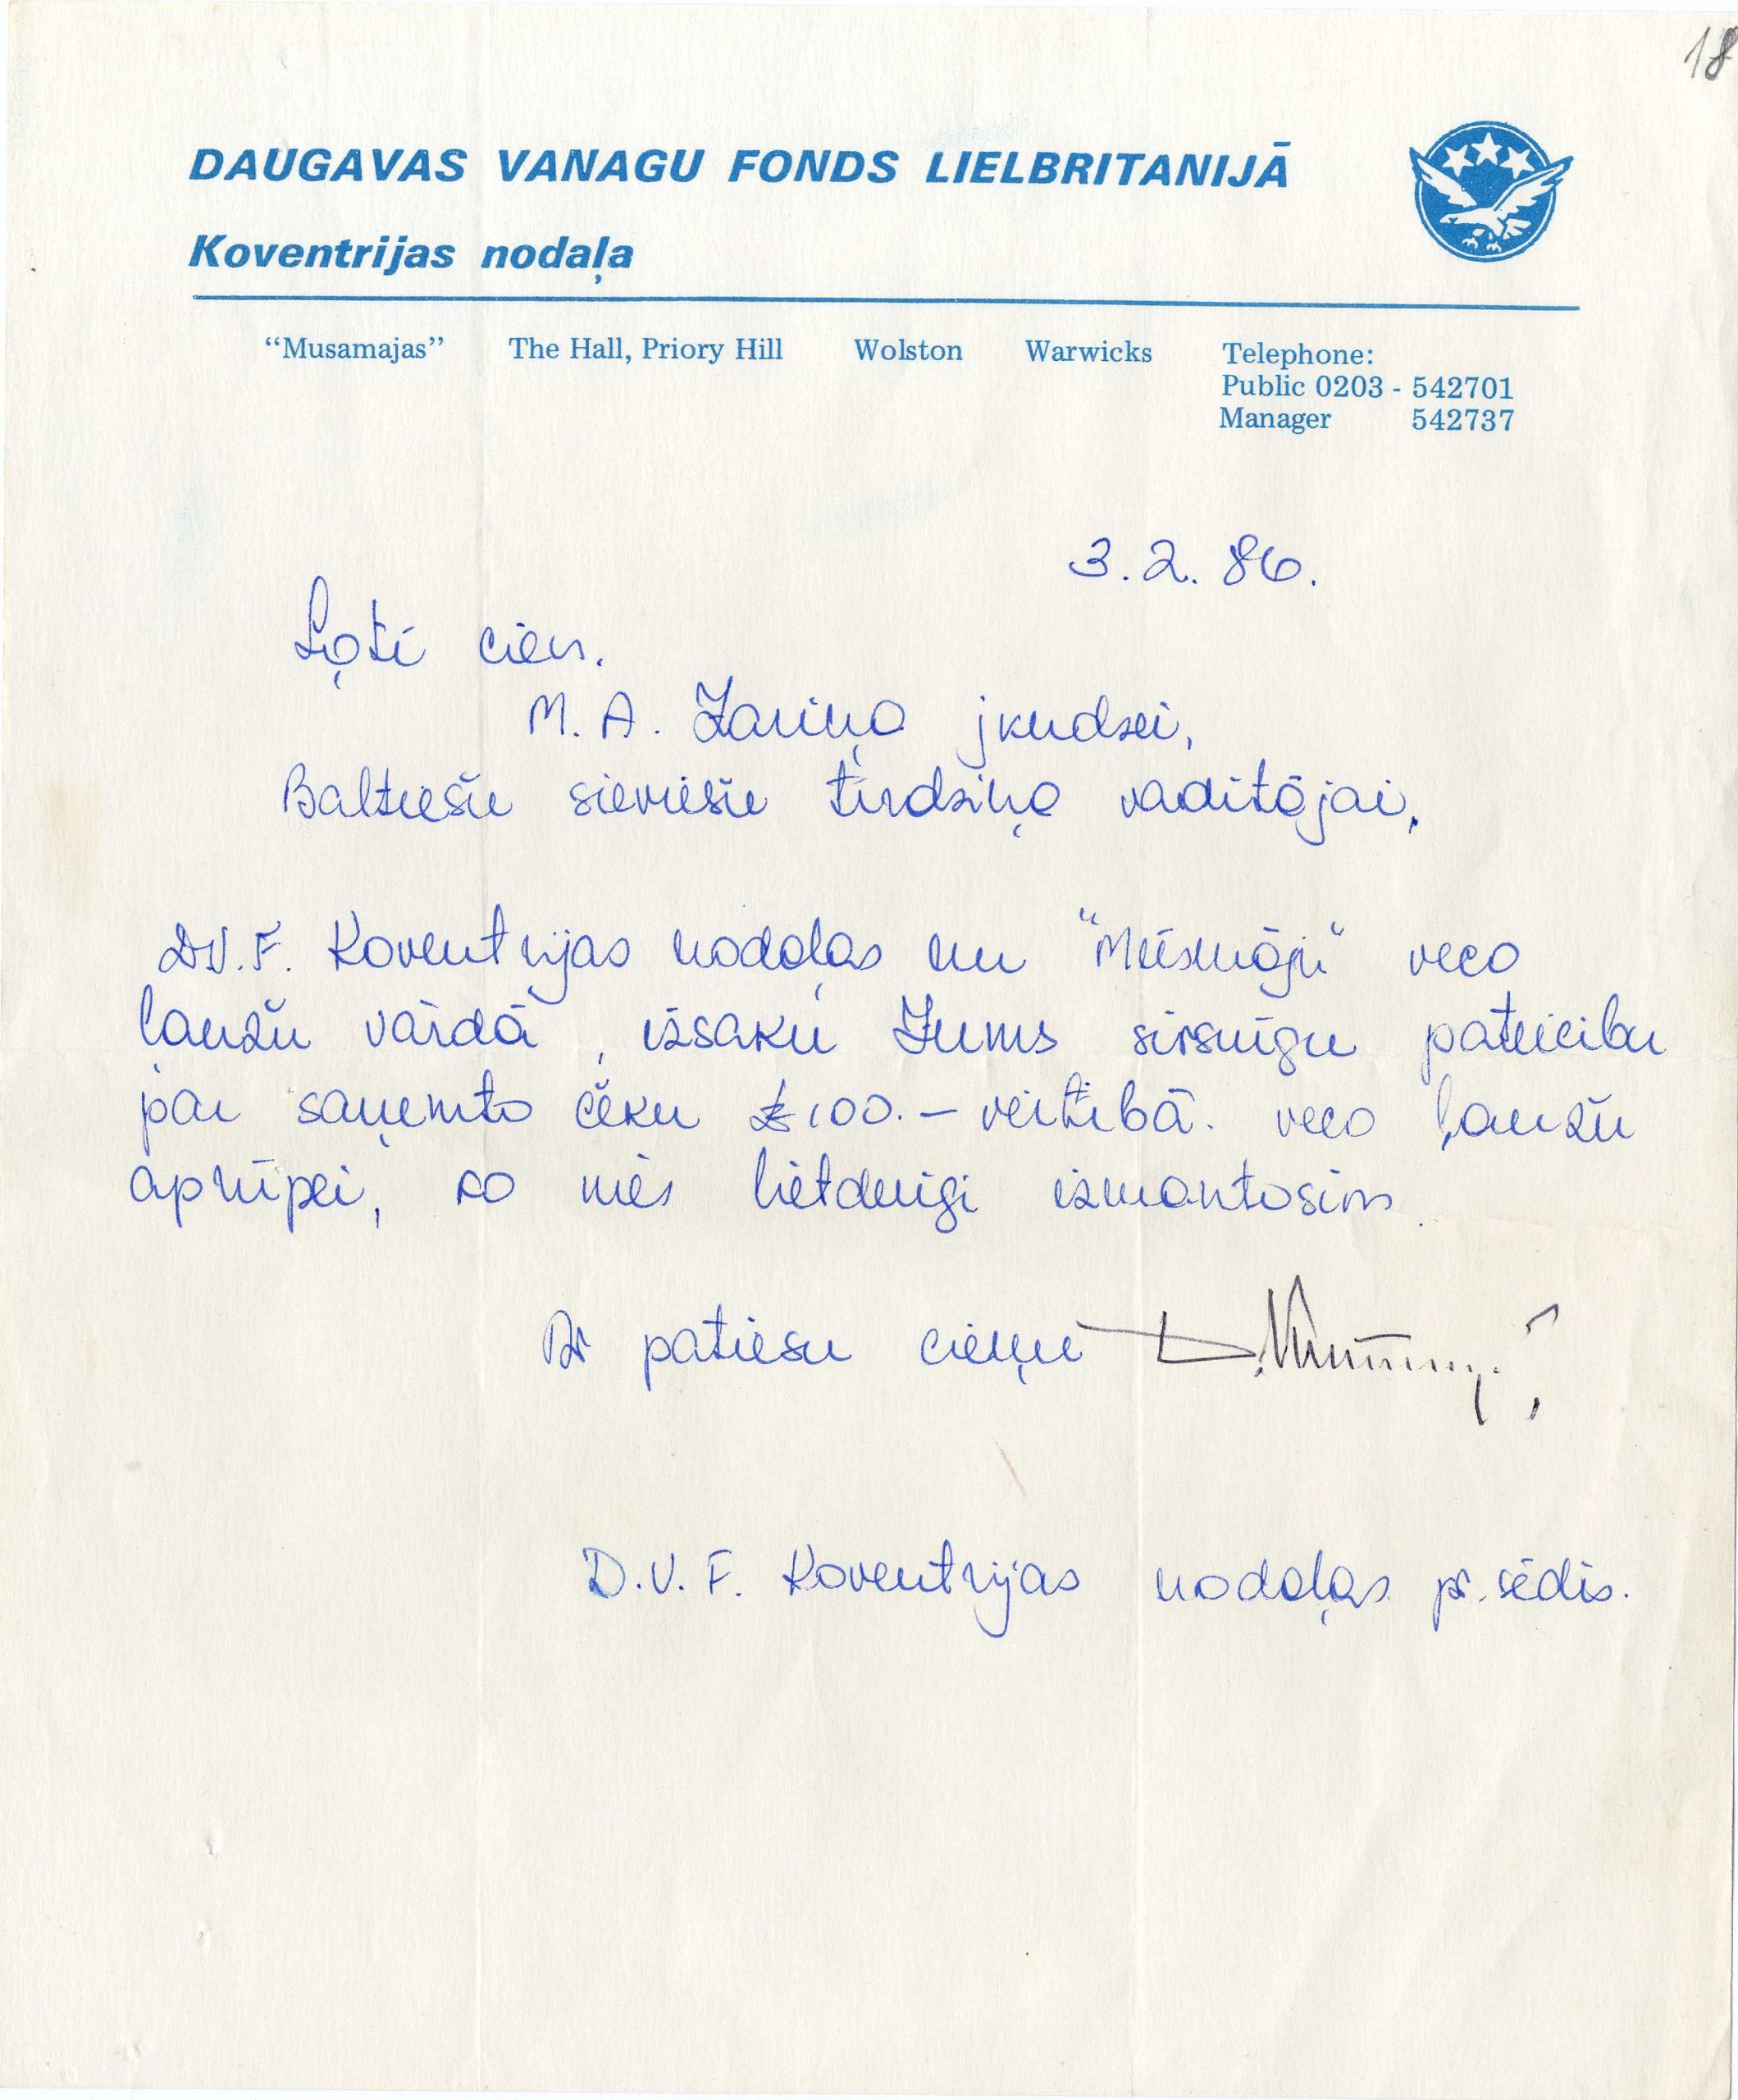 18
DAUGAVAS VANAGU FONDS LIELBRITANIJĀ
Koventrijas nodaļa
“Musamajas” The Hall, Priory Hill Wolston Warwicks Telephone:
Public 0203 - 542701
Manager 542737
3.2.86.
Ļoti cien.
M. A. Zariņa jkudzei,
Baltiešu sieviešu tirdziņa vadītājai,
D.V.F. Koventrijas nodaļas un "Mūsmāju" veco
ļaužu vārdā, izsaku Jums sirsnīgu pateicību
par saņemto čēku £100.– vērtībā. veco ļaužu
aprūpei, ko mēs lietderīgi izmantosim.
Ar patiesu cieņu
D.V.F. Koventrijas nodaļas pr.sēdis.